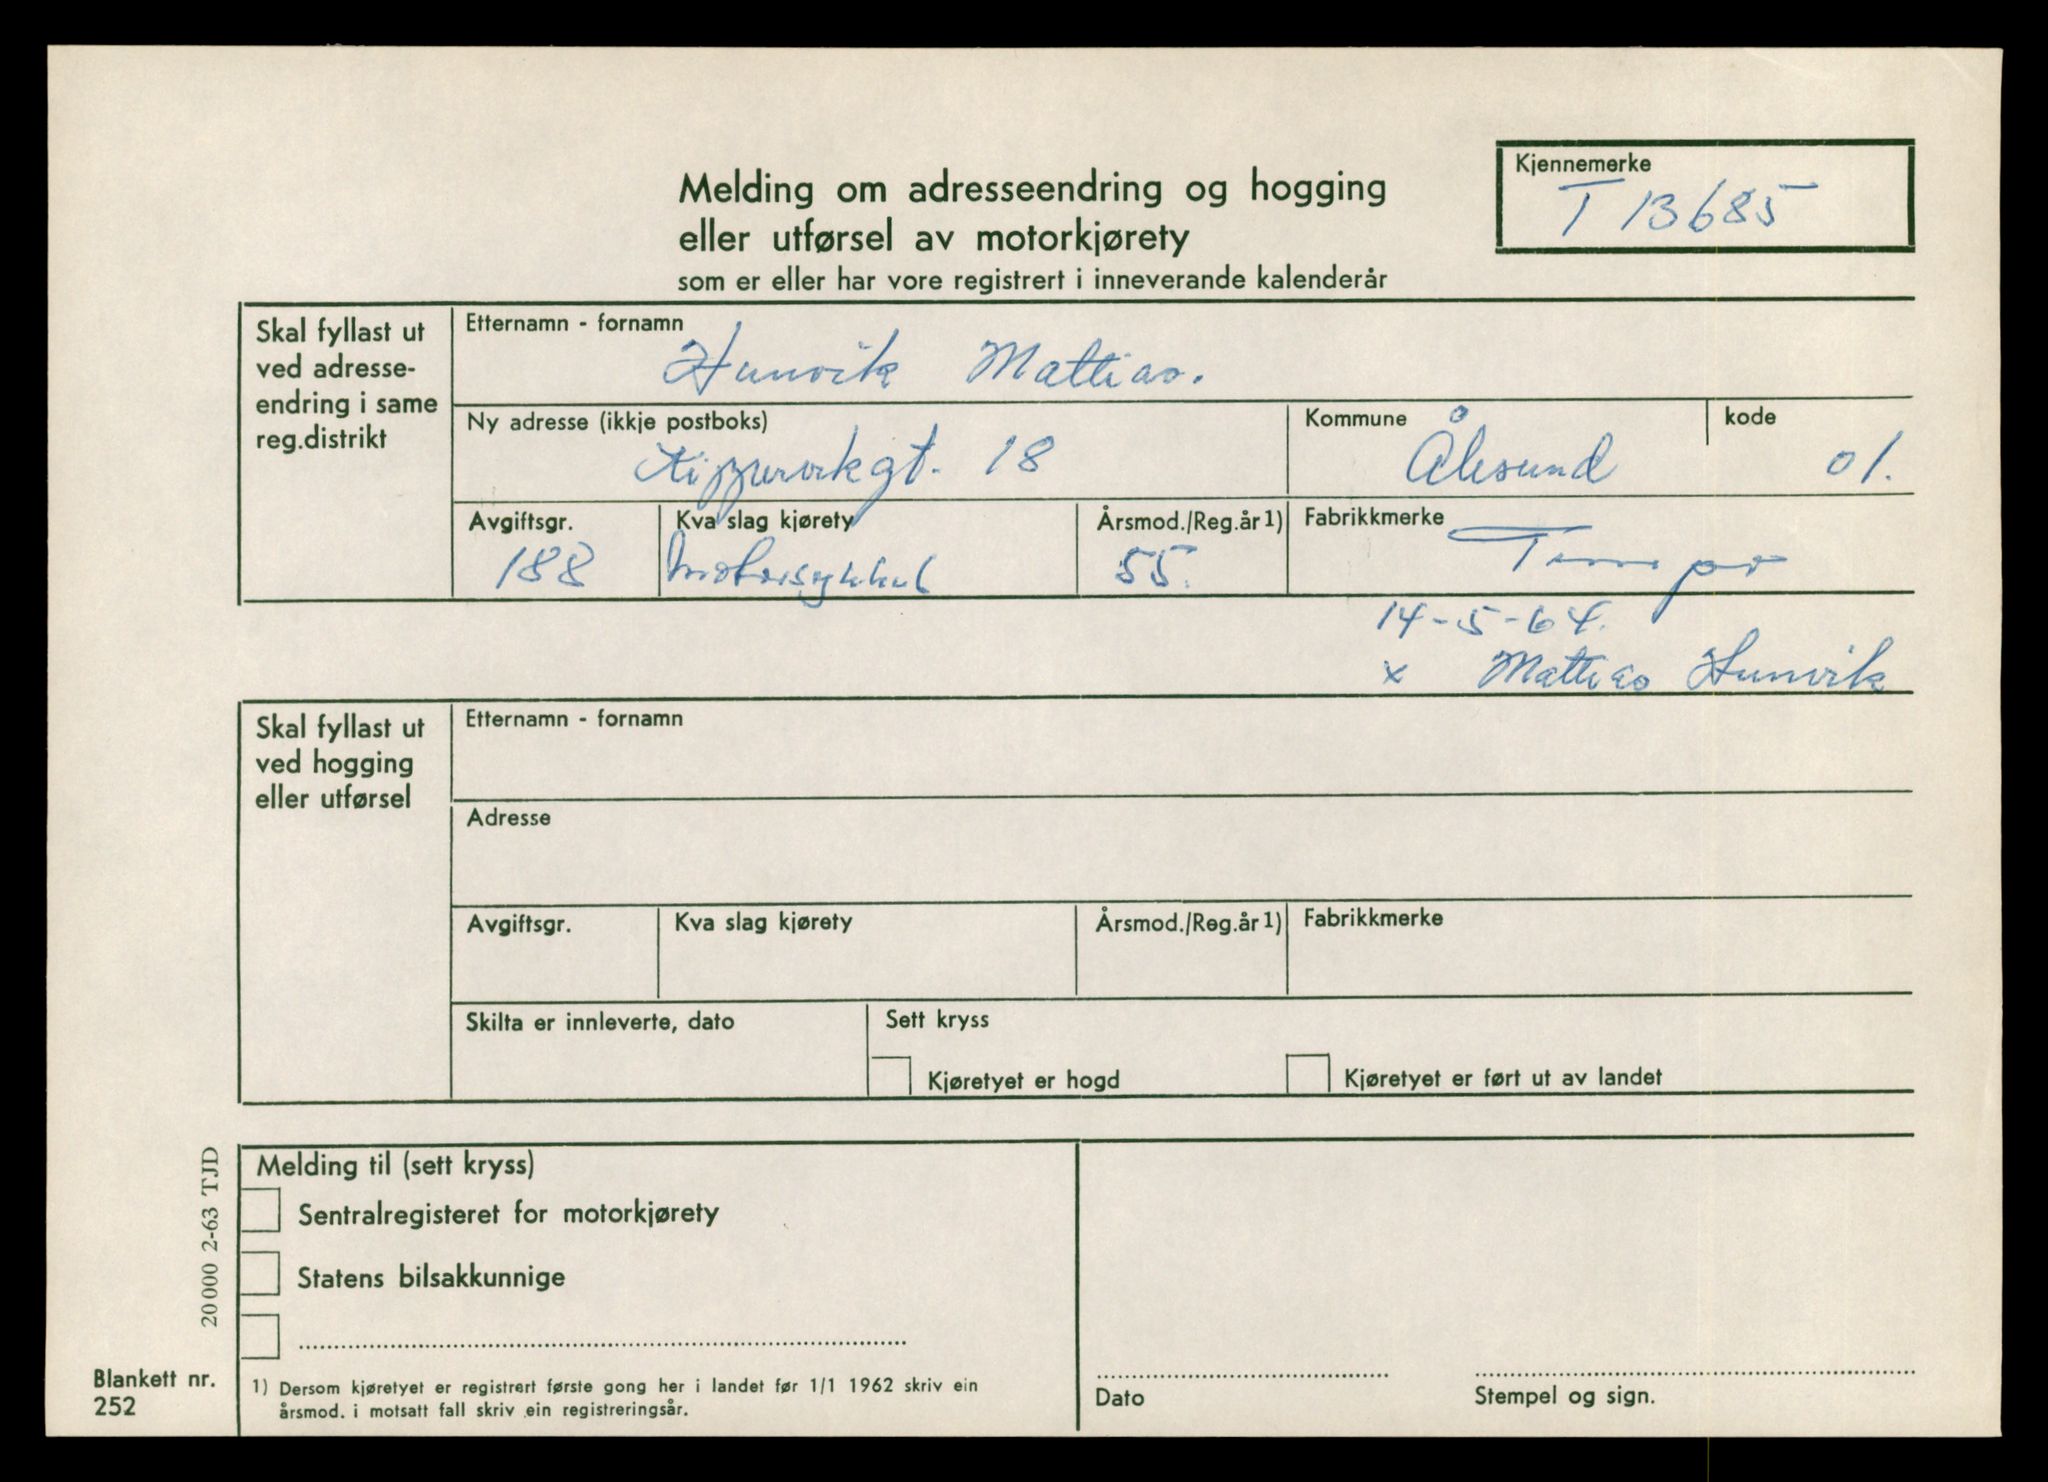 Kjennemerke
T 13685
Melding om adresseendring og hogging
eller utførsel av motorkjørety
som er eller har vore registrert i inneverande kalenderår
Skal fyllast ut
ved adresse-
endring i same
reg.distrikt
Etternamn - fornamn
Hunvik Mattias.
Ny adresse (ikkje postboks)
gt. 18
Kommune
Ålesund
kode
01.
Avgiftsgr.
188
Kva slag kjørety
Motorsykkel
Årsmod./Reg.år 1)
55.
Fabrikkmerke
Tempo
14-5-64.
x Mattias Hunvik
Skal fyllast ut
ved hogging
eller utførsel
Etternamn - fornamn
Adresse
Avgiftsgr.
Kva slag kjørety
Årsmod./Reg.år 1)
Fabrikkmerke
Skilta er innleverte, dato
Sett kryss
Kjøretyet er hogd
Kjøretyet er ført ut av landet
Melding til (sett kryss)
Sentralregisteret for motorkjørety
Statens bilsakkunnige
20 000 2-63 TJD
Blankett nr.
252
1) Dersom kjøretyet er registrert første gong her i landet før 1/1 1962 skriv ein
årsmod. i motsatt fall skriv ein registreringsår.
Dato
Stempel og sign.